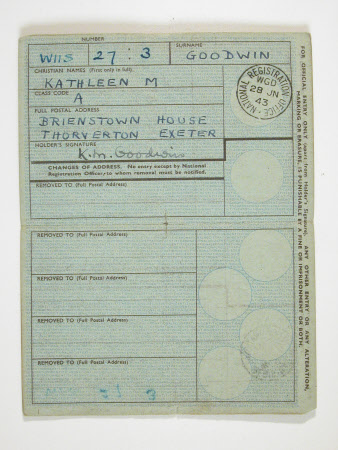 NUMBER
SURNAME
WIIS 27 : 3 GOODWIN
CHRISTIAN NAMES (First only in full)
KATHLEEN M
CLASS CODE
A
FULL POSTAL ADDRESS
BRIENSTOWN HOUSE
THORVERTON EXETER
HOLDER'S SIGNATURE
K.M. Goodwin
CHANGES OF ADDRESS. No entry except by National
Registration Officer, to whom removal must be notified.
REMOVED TO (Full Postal Address)
REMOVED TO (Full Postal Address)
REMOVED TO (Full Postal Address)
REMOVED TO (Full Postal Address)
REMOVED TO (Full Postal Address)
NATIONAL REGISTRATION OFFICE
WGD
28 JN
43
FOR OFFICIAL ENTRY ONLY (apart from Holder's Signature). ANY OTHER ENTRY OR ANY ALTERATION,
MARKING OR ERASURE, IS PUNISHABLE BY A FINE OR IMPRISONMENT OR BOTH.